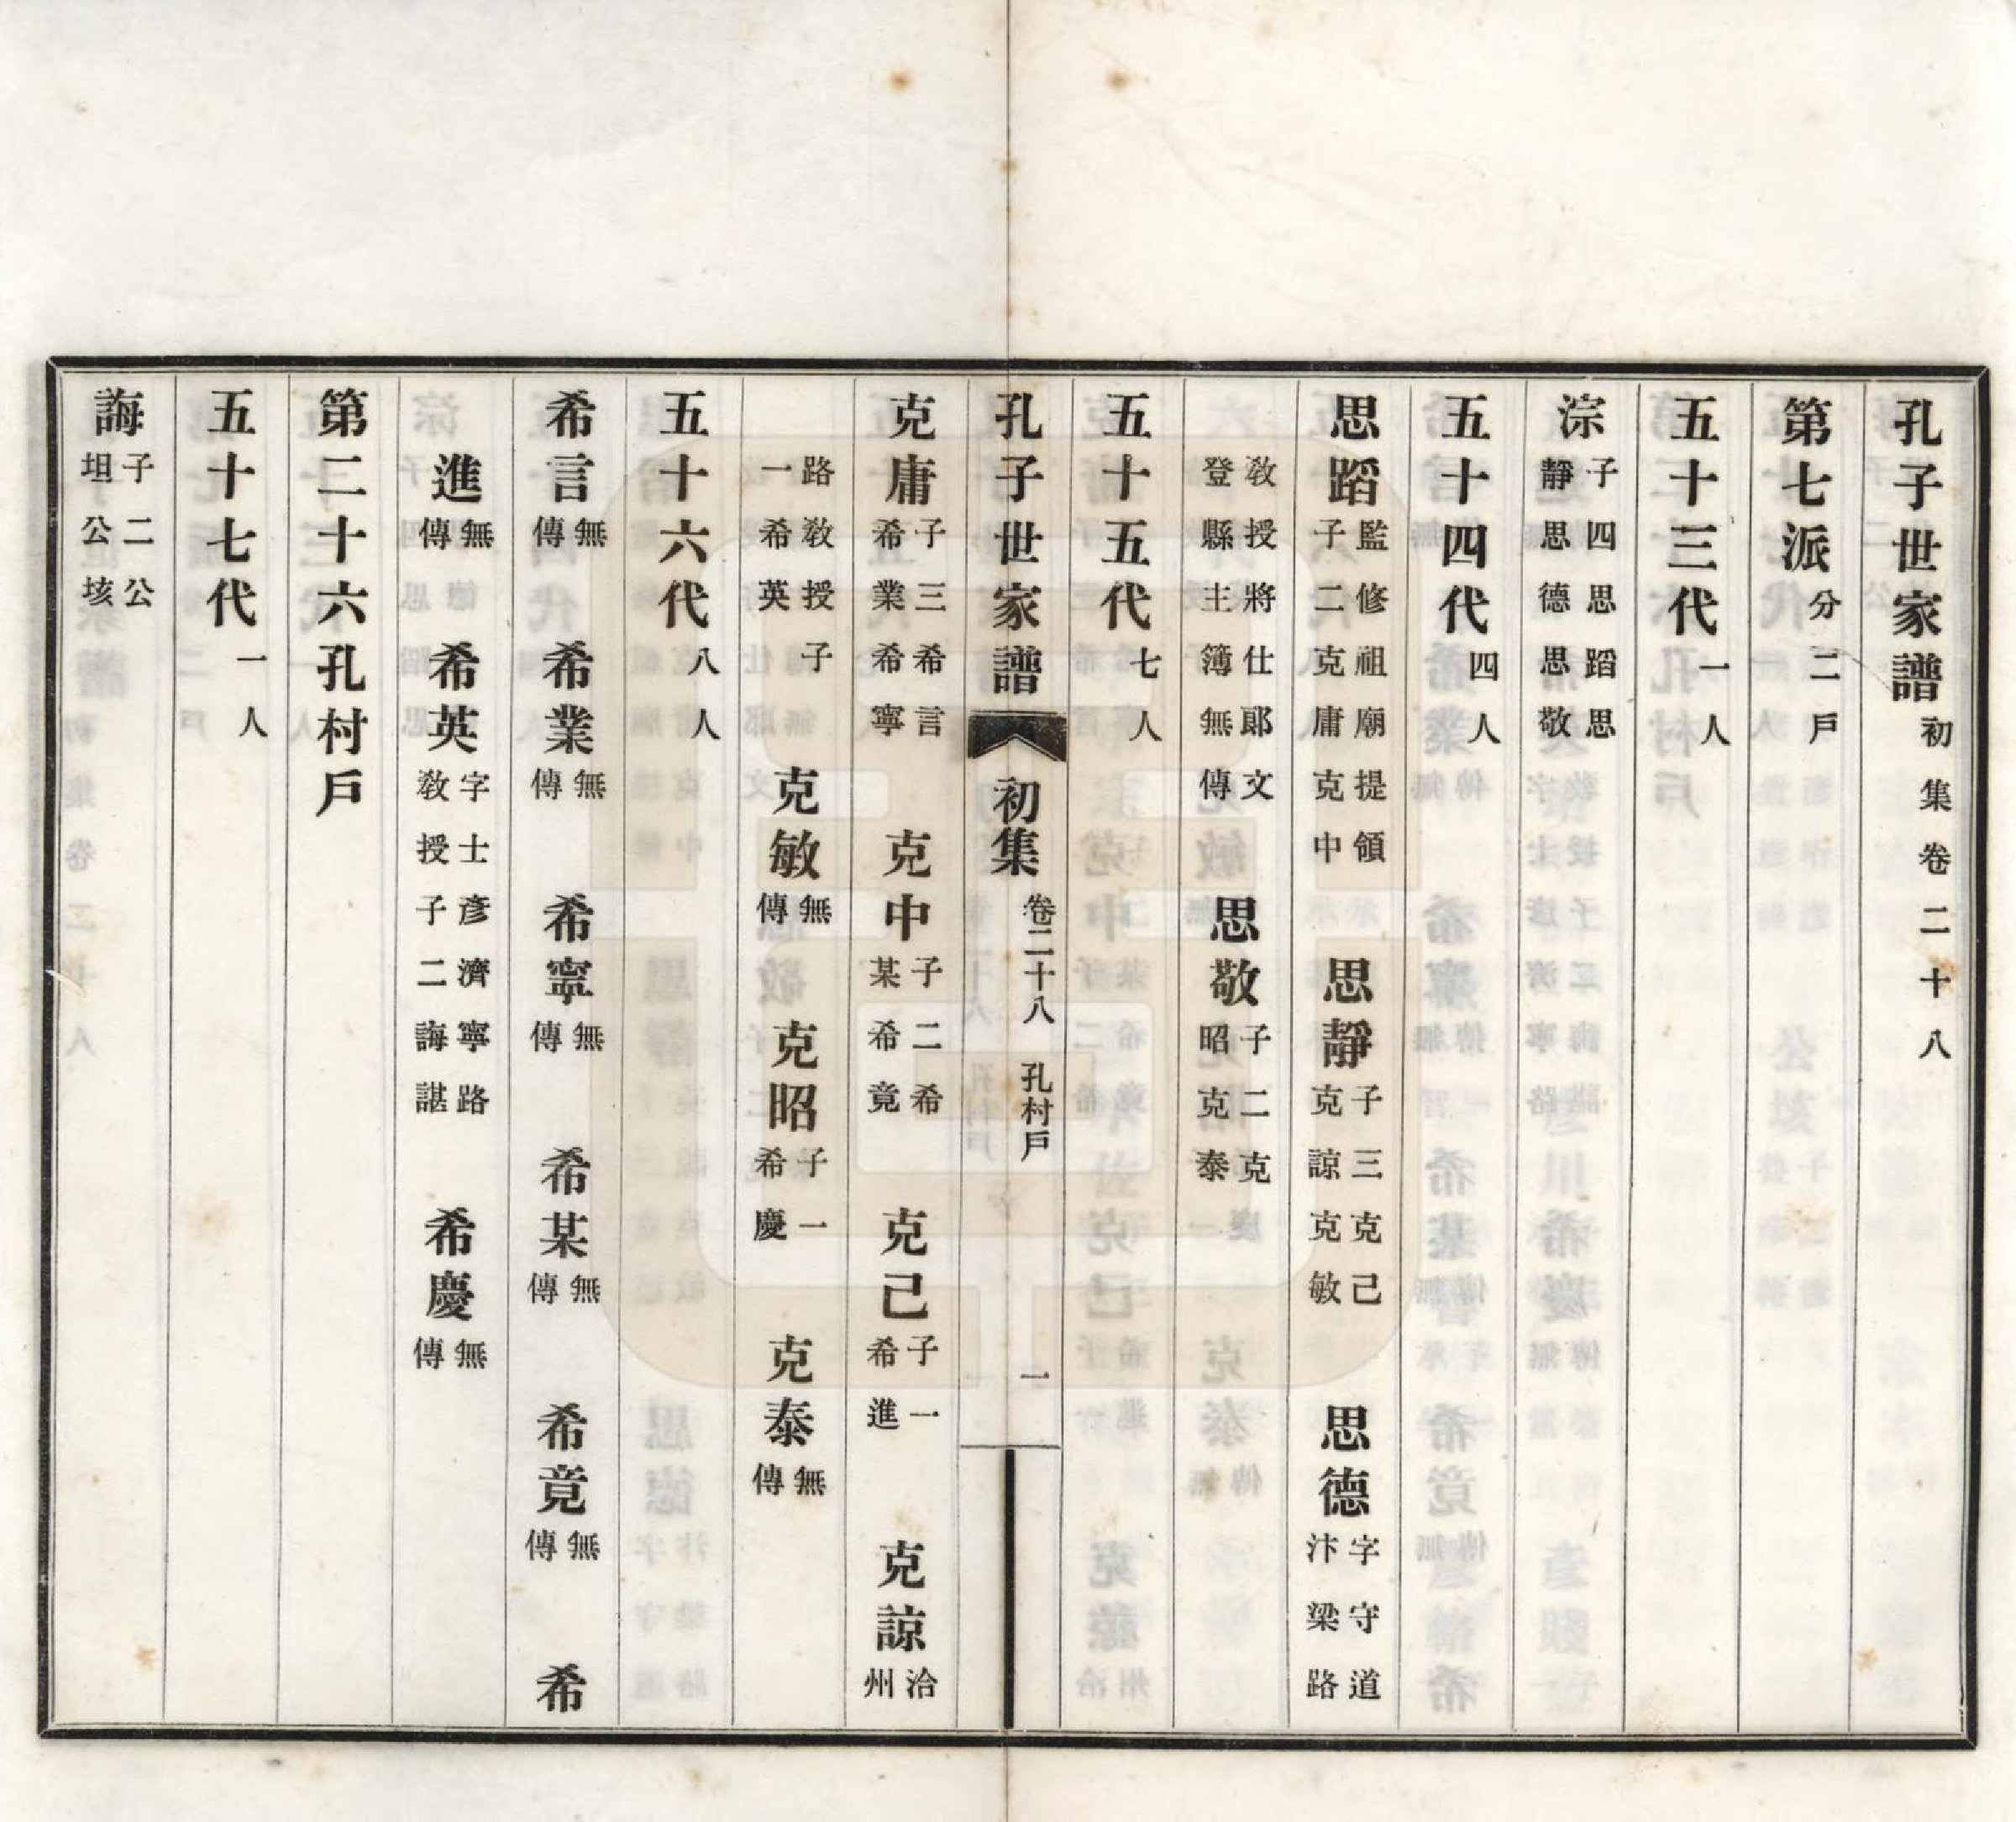 孔子世家譜初集卷二十八
第七派分二戶
五十三代一人
淙子四思蹈思靜思德思敬
五十四代四人
思蹈監修祖廟提領子二克庸克中　思靜子三克己克諒克敏　思德字守道汴梁路
敎授將仕郞文登縣主簿無傳　思敬子二克昭克泰
五十五代七人
孔子世家譜　初集　卷二十八　孔村戶　一
克庸子三希言希業希寧　克中子二希某希竟　克己子一希進　克諒洽州
路敎授子一希英　克敏無傳　克昭子一希慶　克泰無傳
五十六代八人
希言無傳　希業無傳　希寧無傳　希某無傳　希竟無傳　希
進無傳　希英字士彥濟寧路敎授子二誨諶　希慶無傳
第二十六孔村戶
五十七代一人
誨子二公坦公垓